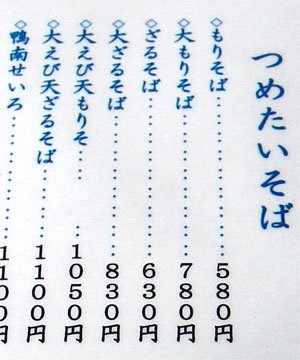 つめたいそば
◇もりそば…………580円
◇大もりそば………780円
◇ざるそば…………630円
◇大ざるそば………830円
◇大えび天もりそ… …1050円
◇大えび天ざるそば……1100円
◇鴨南せいろ…………1100円